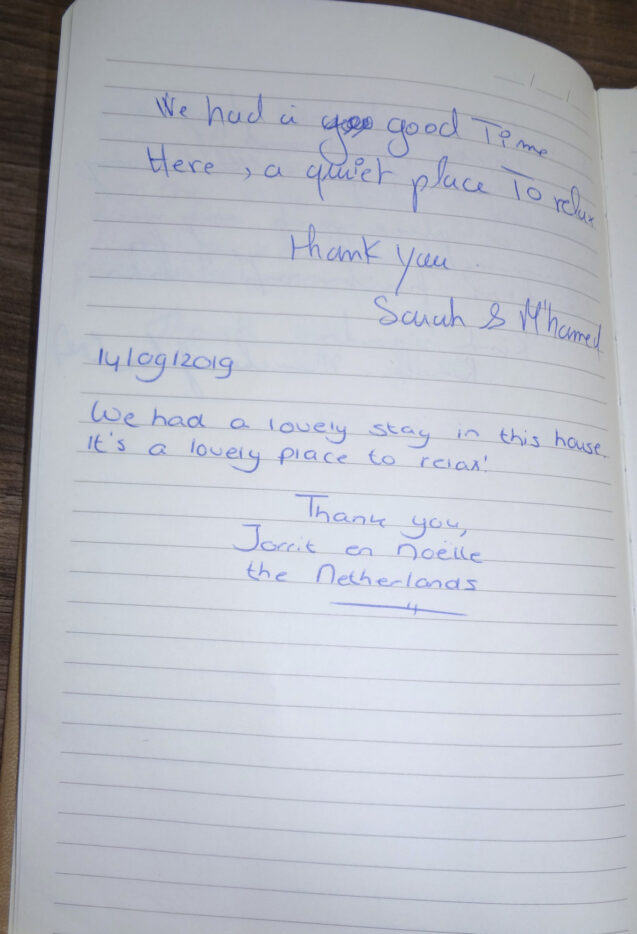 We had a good Time
Here, a quiet place To relax
thank you
Sarah & M'hamed
14/09/2019
We had a lovely stay in this house.
It's a lovely place to relax!
Thank you,
Jorrit en Noëlle
the Netherlands